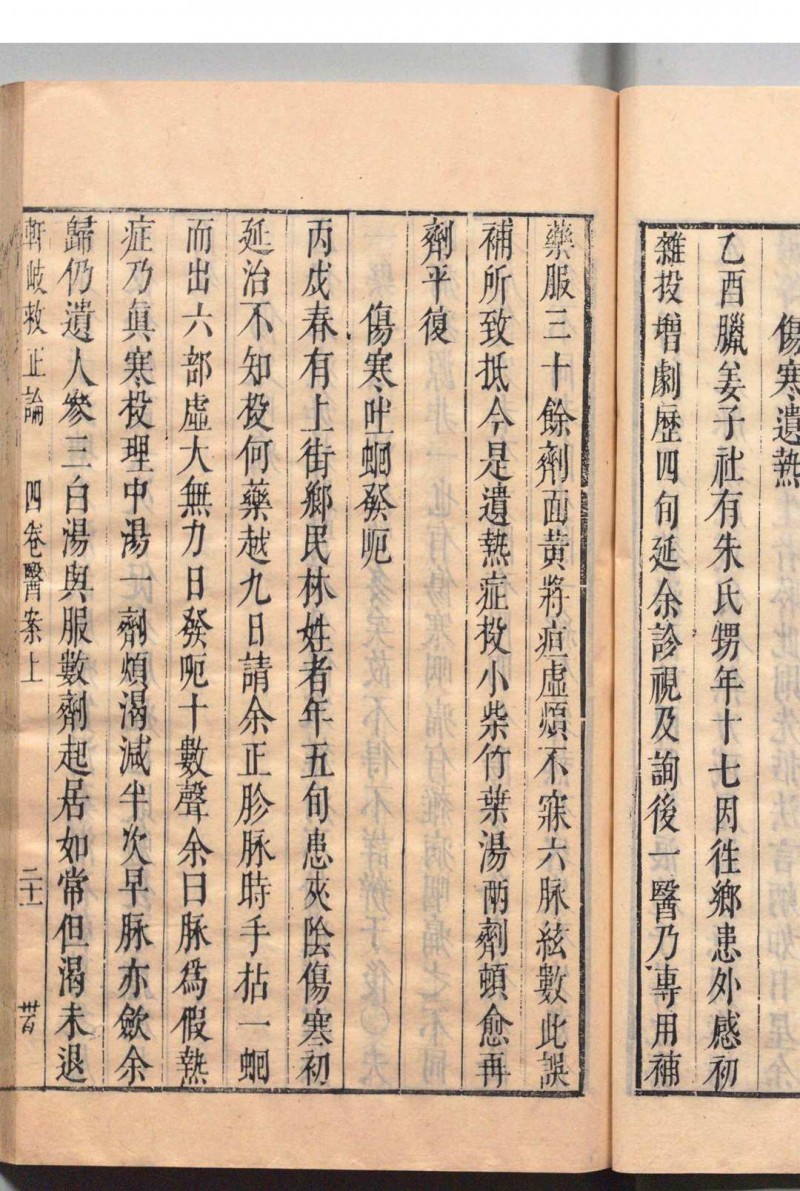 傷寒遺熱
乙酉臘姜子社有朱氏甥年十七因徃鄉患外感初
雜投增劇歷四旬延余診視及詢後一醫乃專用補
藥服三十餘劑面黃將疸虛煩不寐六脉絃數此誤
補所致抵今是遺熱症投小柴竹葉湯兩劑頓愈再
劑平復
傷寒吐蛔發呃
丙戌春有上街鄉民林姓者年五旬患夾陰傷寒初
延治不知投何藥越九日請余正胗脉時手拈一蛔
而出六部虛大無力日發呃十數聲余曰脉爲假熱
症乃眞寒投理中湯一劑煩渴減半次早脉亦斂余
歸仍遺人參三白湯與服數劑起居如常但渴未退
軒岐救正論 四卷醫案上 二十一